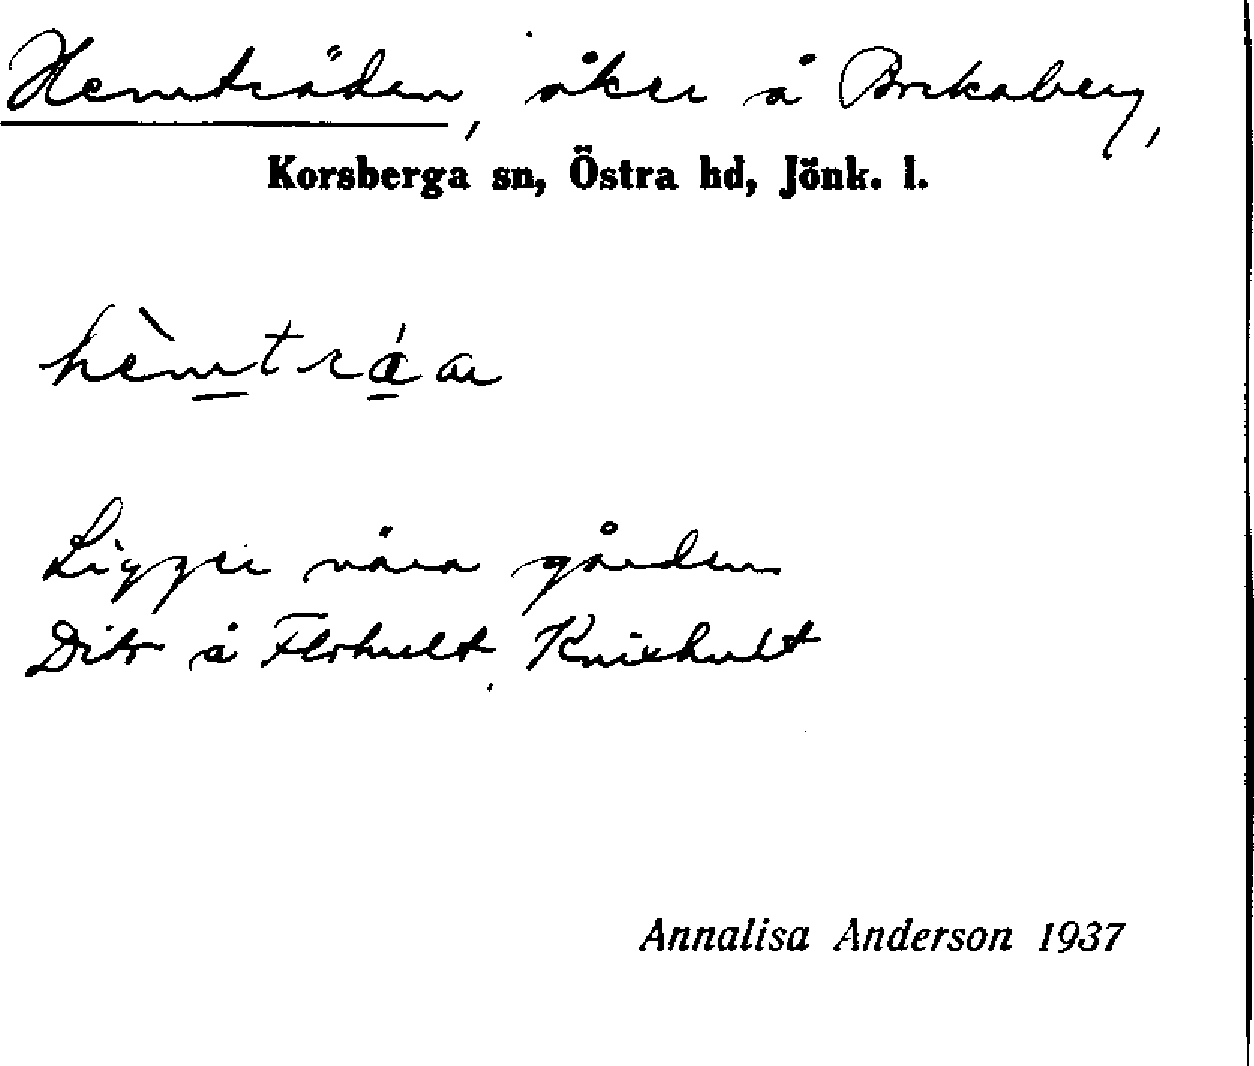 Hemträden, åker å Brckaberg,
Korsberga sn, Östra hd, Jönk. l.
hèmtráan
Ligger nära gården
Dito å Flohult, Knixhult
Annalisa Anderson 1937